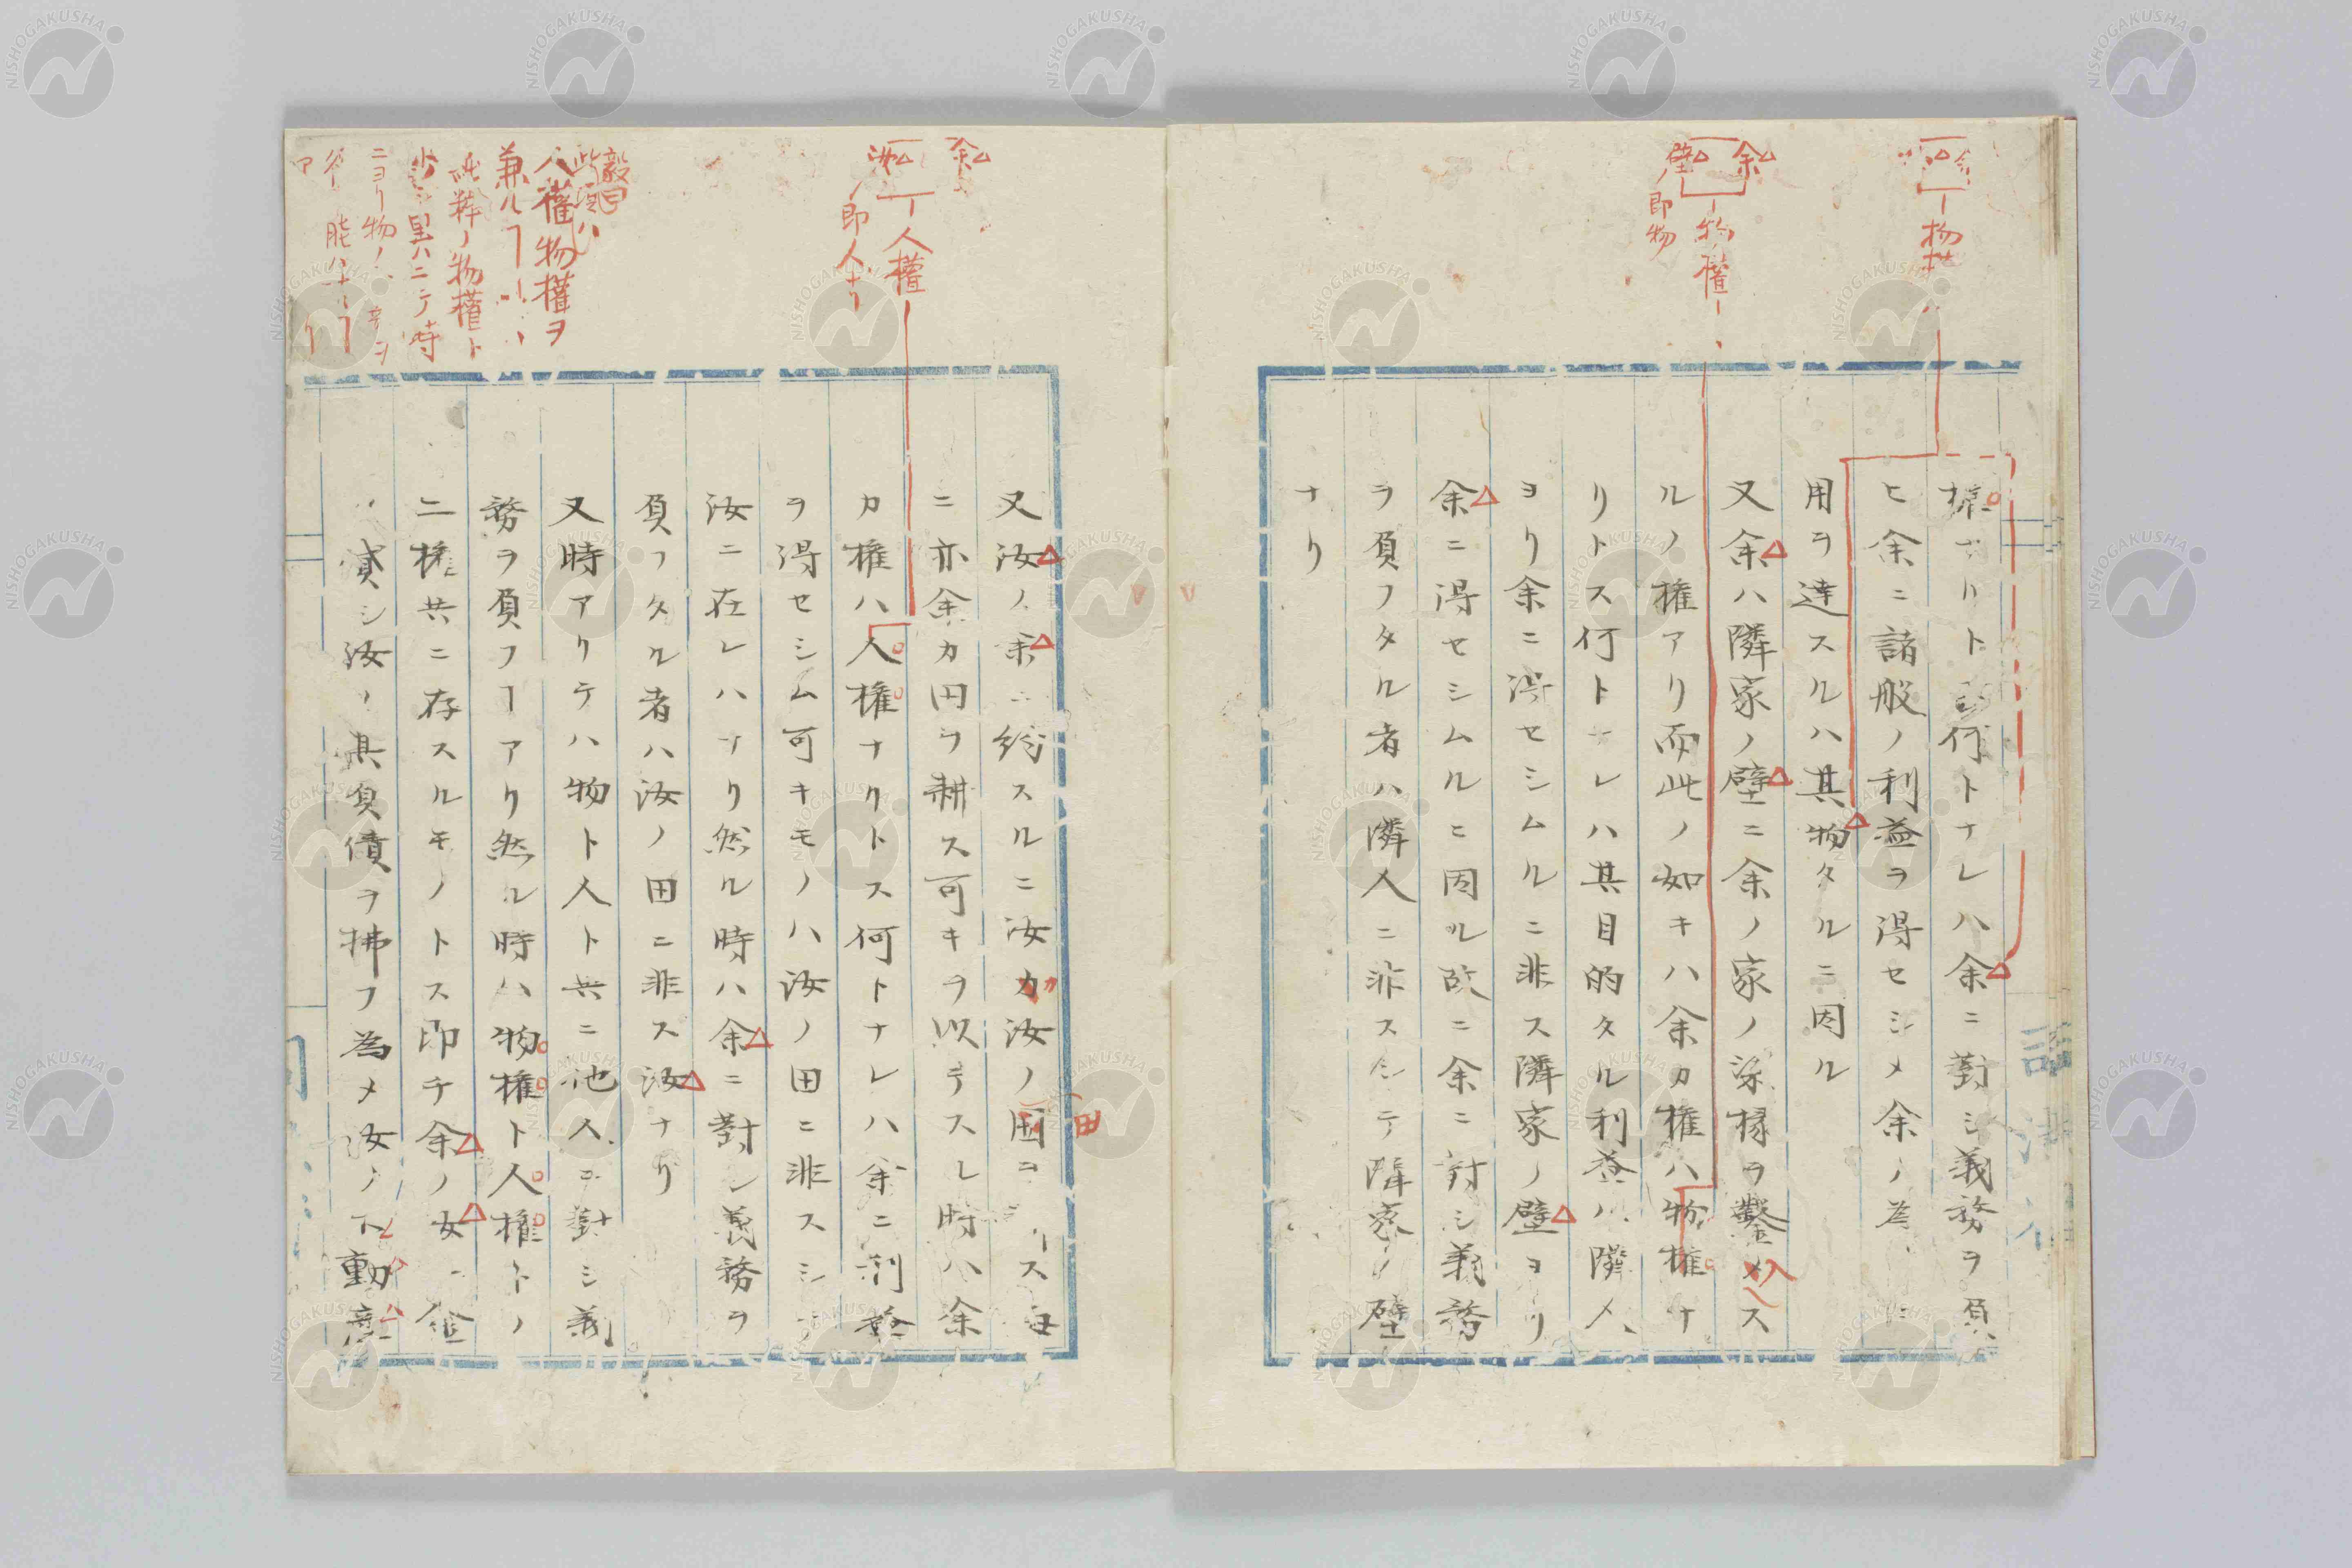 余
物権
余
壁
即物
物権
権ナリト何トナレハ余ニ對シ義務ヲ負
ヒ余ニ諸般ノ利益ヲ得セシメ余ノ為
用ヲ達スルハ其物タルニ因ル
又余ハ隣家ノ壁ニ余ノ家ノ梁椽ヲ鑿メス
入
ルノ権アリ而此ノ如キハ余カ権ハ物権ナ
リトス何トナレハ其目的タル利益ハ隣人
ヨリ余ニ得セシムルニ非ス隣家ノ壁ヨリ
余ニ得セシムルニ因ル故ニ余ニ對シ義務
ヲ負フタル者ハ隣人ニ非スシテ隣家ノ壁
ナリ
余
汝
人権
即人ナリ
毅曰
此項ハ
人権物権ヲ
兼ル
此等ノ物権ト
少シ異ハニテ時
ニヨリ物ノ
能ハ
又汝ノ余ニ約スルニ汝カ汝ノ困ヲスル毎
田
ニ亦余カ円ヲ耕ス可キヲ以テスレ時ハ余
カ権ハ人権ナリトス何トナレハ余ニ利益
ヲ得セシム可キモノハ汝ノ田ニ非スシテ
汝ニ在レハナリ然ル時ハ余ニ對シ義務ヲ
負フタル者ハ汝ノ田ニ非ス汝ナリ
又時アリテハ物ト人ト共ニ他人ニ對シ義
務ヲ負フヿアリ然ル時ハ物権ト人権トノ
二権共ニ存スルモノトス即チ余ノ女ニ金
ヲ貸シ汝ノ其負債ヲ拂フ為メ汝ノ不動産
NISHOGAKUSHA